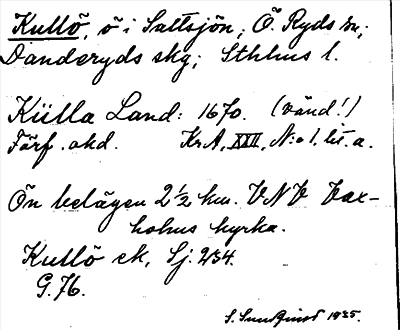 Kullö, ö i Saltsjön, Ö. Ryds sn;
Danderyds skg; Sthlms l.
Külla Land: 1670. (vänd!)
Förf. okd. Kr.A, XXII, N:o 1, lit. a.
Ön belägen 2½ km. VNV Vax-
holms kyrka.
Kullö ek, Sj. 234.
G. 76.
S. Sundquist 1935.